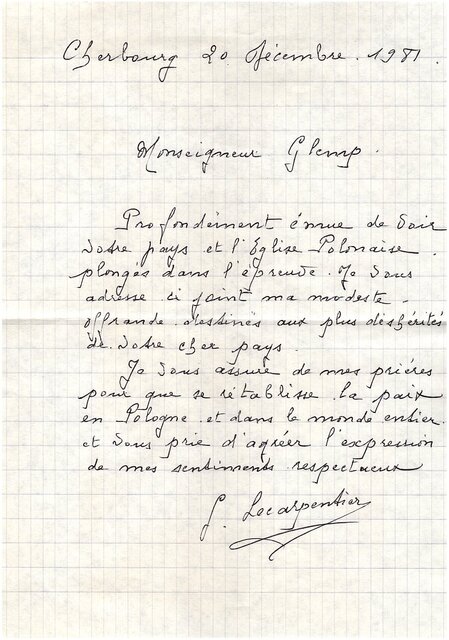 Cherbourg 20 Décembre. 1981.
Monseigneur Glemp.
Profondément émue de voir
votre pays et l'Eglise Polonaise.
plongés dans l'épreuve. Je vous
adresse ci joint ma modeste
offrande. destinés aux plus déshérités
de. votre cher pays.
Je vous assure de mes prières
pour que se rétablisse. la paix
en Pologne. et dans le monde entier.
et vous prie d'agréer l'expression
de mes sentiments respectueux
G. Lecarpentier